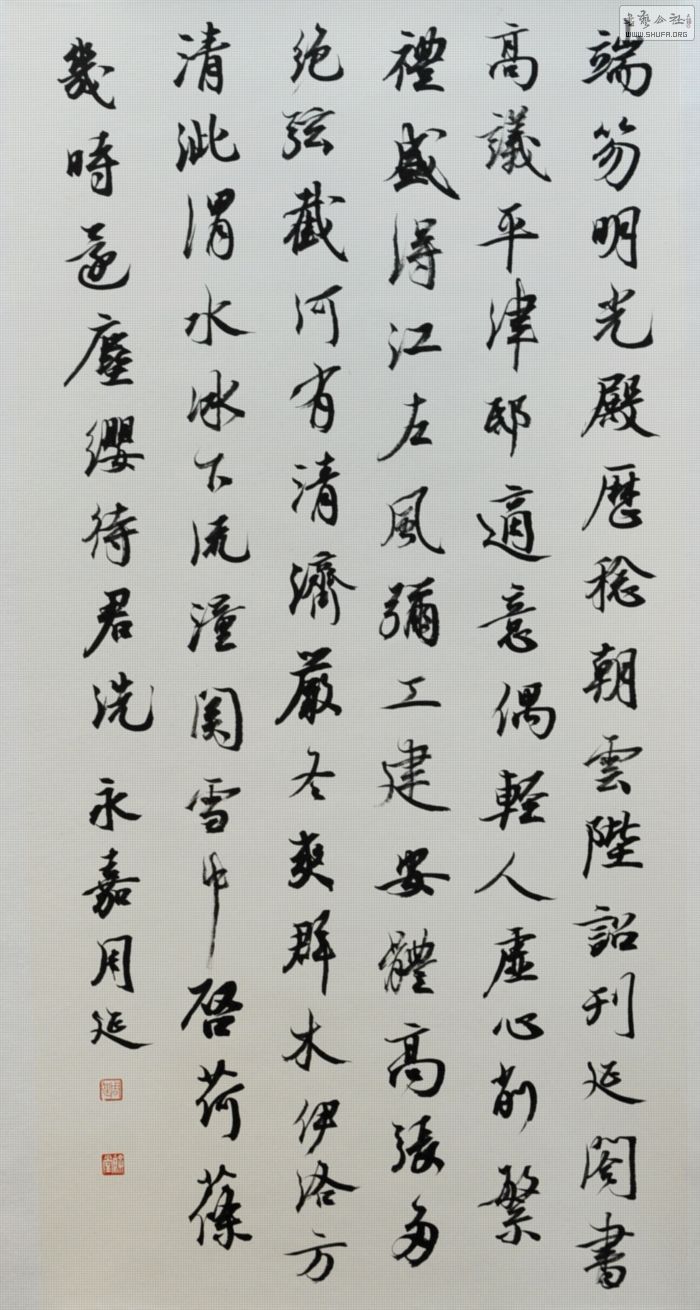 端笏明光殿歷稔朝雲陛詔刊延閣書
高議平津邸適意偶輕人虛心削繁
禮盛得江左風彌工建安體高張多
絕弦截河有清濟嚴冬爽群木伊洛方
清泚渭水冰下流潼關雪中啓荷蓧
幾時還塵纓待君洗 永嘉周延
書藝公社
WWW.SHUFA.ORG